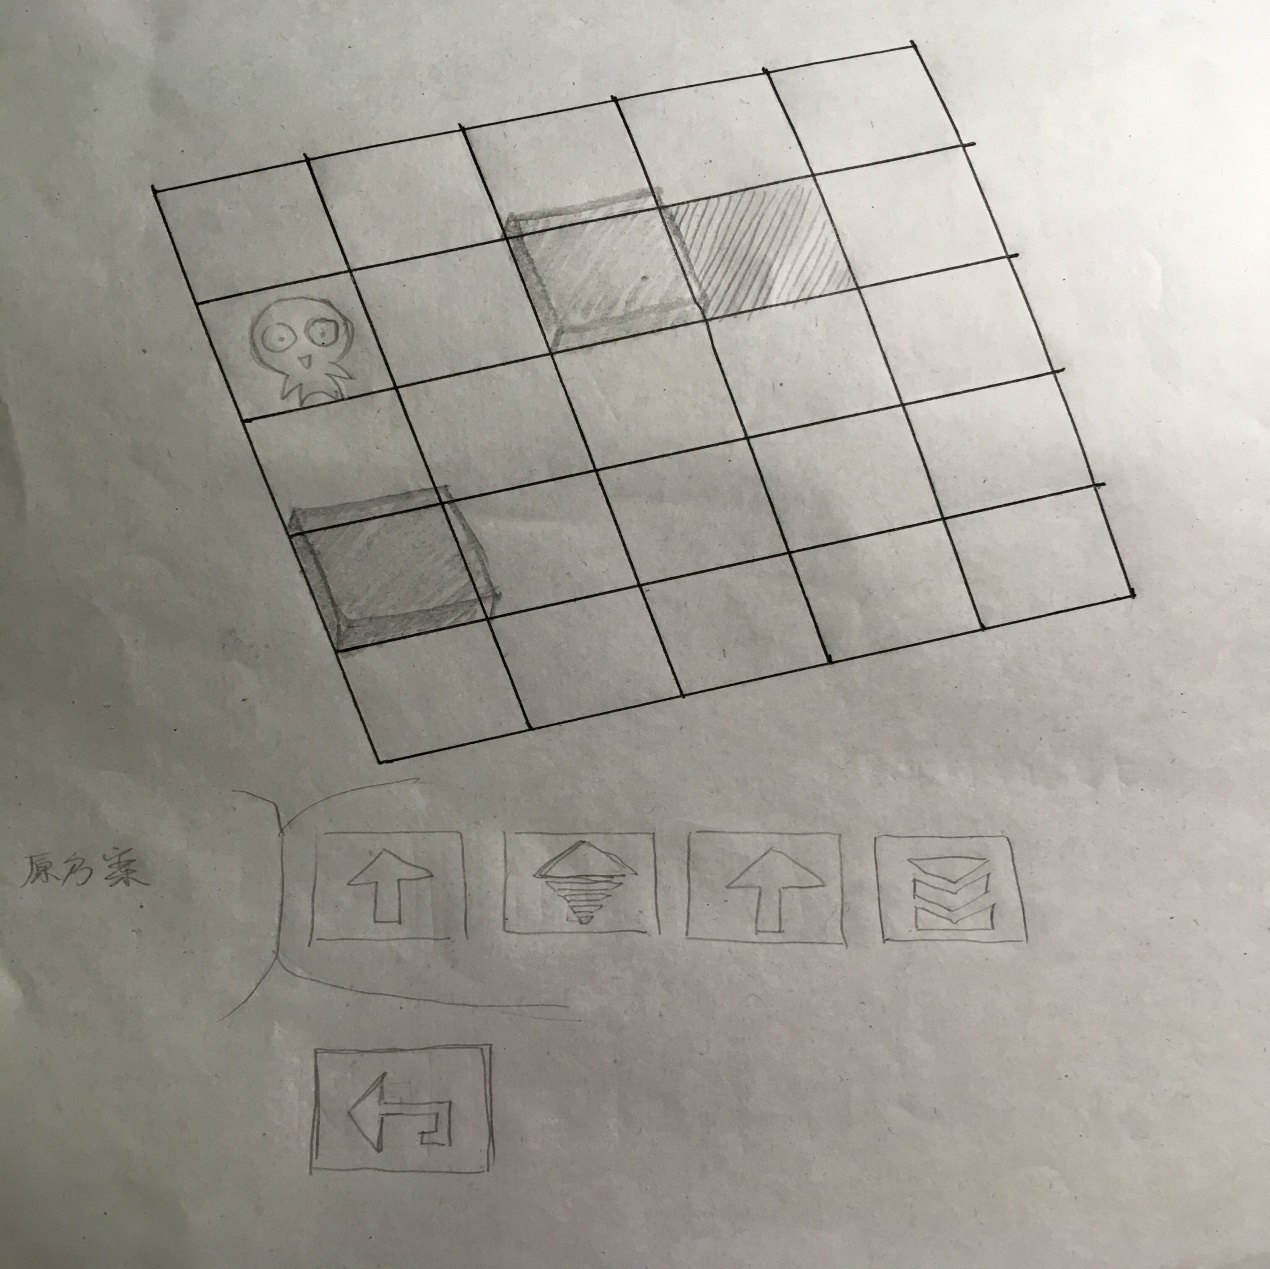 原方案